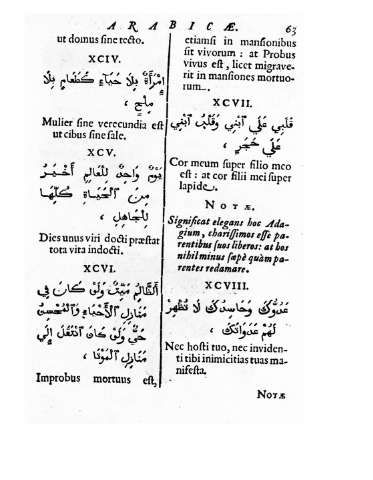 ARABICÆ. 63
ut domus sine tecto.
XCIV.
إِمْرَأَةٌ بِلَا حَيَاءٍ كَطَعَامٍ بِلَا
مِلْحٍ ،
Mulier sine verecundia est
ut cibus sine sale.
XCV.
يَوْمٌ وَاحِدٌ لِلْعَالِمِ أَخْيَرُ
مِنَ ٱلْحَيَاةِ كُلِّهَا
لِلْجَاهِلِ ،
Dies unus viri docti præstat
tota vita indocti.
XCVI.
اَلظَّالِمُ مَيِّتٌ وَلَوْ كَانَ فِي
مَنَازِلِ ٱلْأَحْيَاءِ وَٱلْمُحْسِنُ
حَيٌّ وَلَوْ كَانَ ٱنْتَقَلَ إِلَي
مَنَازِلِ ٱلْمَوْتَا ،
Improbus mortuus est,
etiamsi in mansionibus
sit vivorum : at Probus
vivus est, licet migrave-
rit in mansiones mortuo-
rum.
XCVII.
قَلْبِي عَلَي ٱبْنِي وَقَلْبُ ٱبْنِي
عَلَي حَجَرٍ ،
Cor meum super filio meo
est : at cor filii mei super
lapide.
NOTÆ.
Significat elegans hoc Ada-
gium, charissimos esse pa-
rentibus suos liberos: at hos
nihil minus sæpè quàm pa-
rentes redamare.
XCVIII.
عَدُوُّكَ وَحَاسِدُكَ لَا تُظْهِرْ
لَهُمْ عَدَوَاتَكَ ،
Nec hosti tuo, nec inviden-
ti tibi inimicitias tuas ma-
nifesta.
NOTÆ